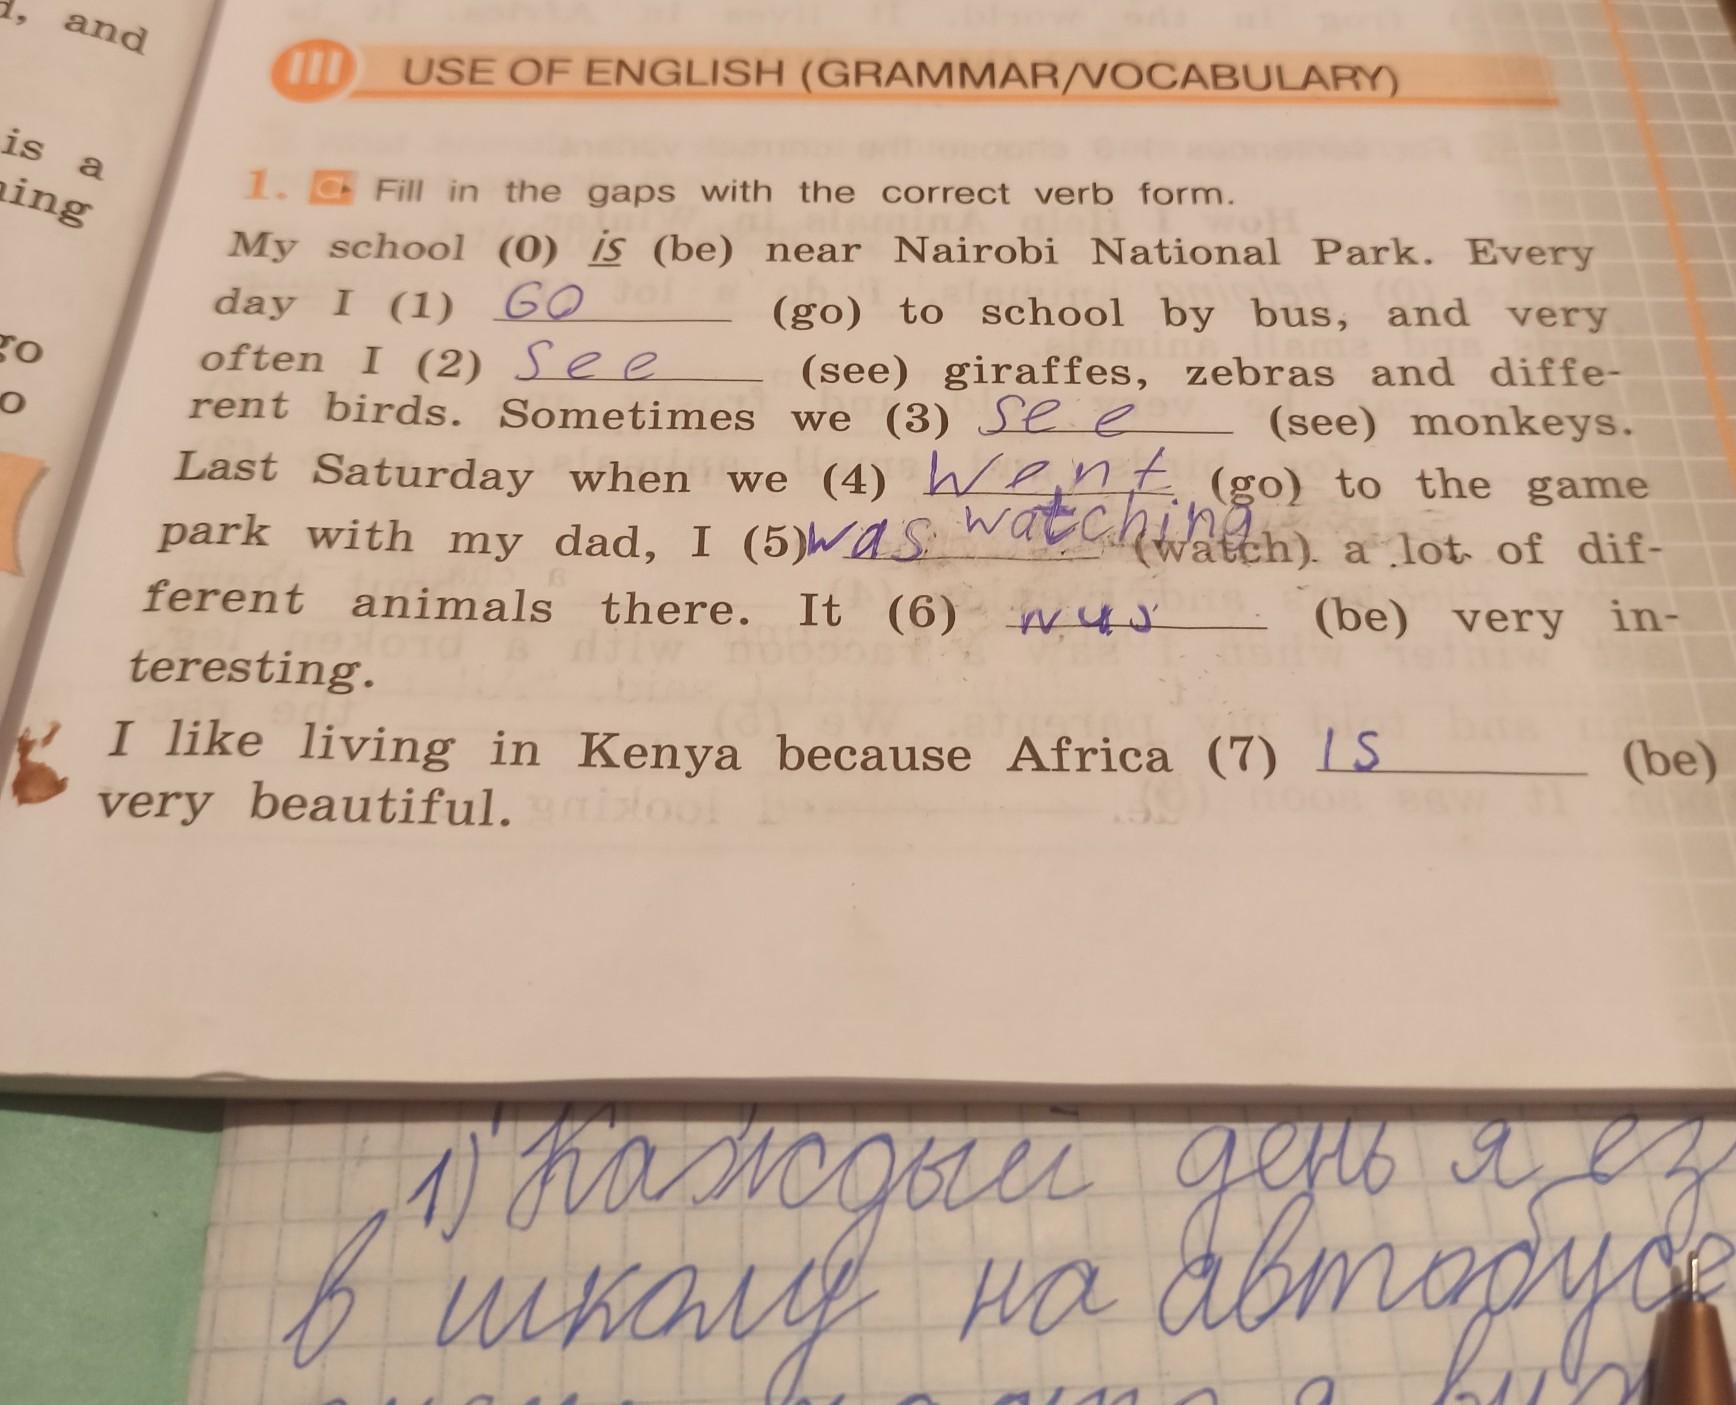 d, and
is a
ning
go
o
III USE OF ENGLISH (GRAMMAR/VOCABULARY)
1. Fill in the gaps with the correct verb form.
My school (0) is (be) near Nairobi National Park. Every
day I (1) GO (go) to school by bus, and very
often I (2) see (see) giraffes, zebras and diffe-
rent birds. Sometimes we (3) see (see) monkeys.
Last Saturday when we (4) went (go) to the game
park with my dad, I (5) was watching (watch) a lot of dif-
ferent animals there. It (6) was (be) very in-
teresting.
I like living in Kenya because Africa (7) is (be)
very beautiful.
1) Каждый день я ез
в школу на автобусе